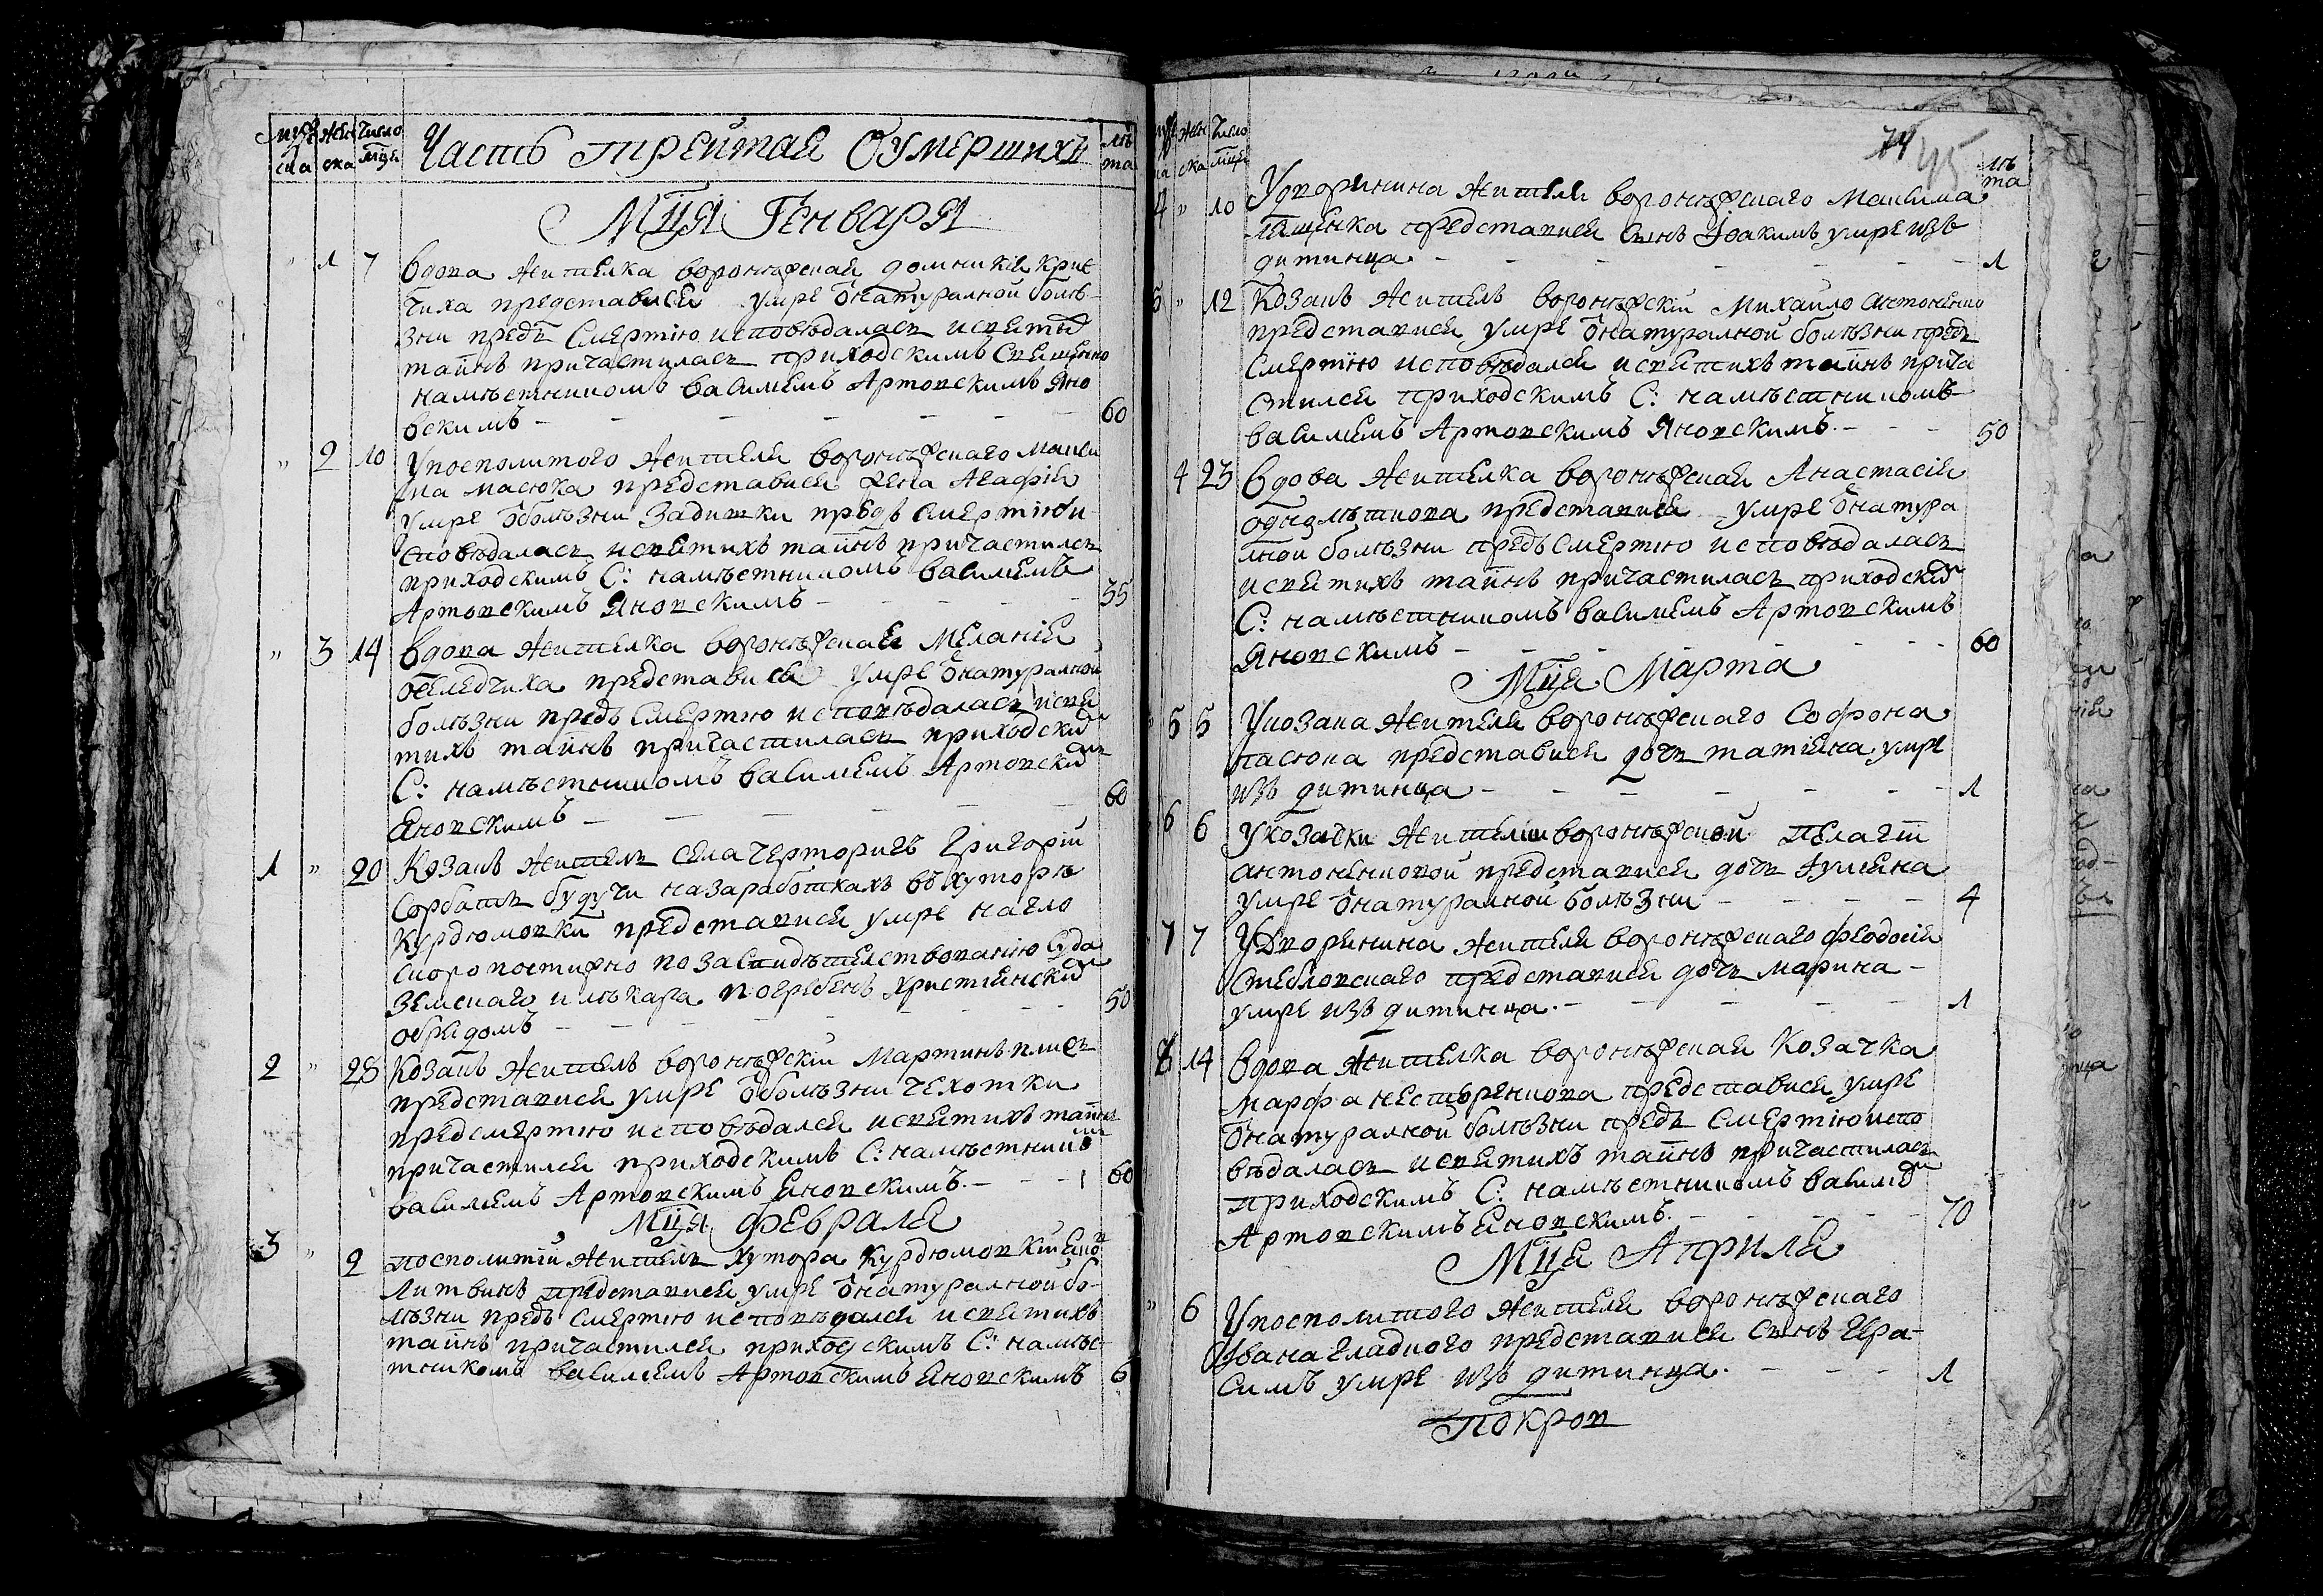 Муже ска
Жен ска
Число мця
Часть третая Оумершихъ
лѣ та
Мця Генваря
" 1 7 вдова жителка воронѣжская домникія Крив
чиха представися умре Ѿнатуралной болѣ-
зни предъ Смертію исповѣдалась исвяты
таинъ причастилась приходскимъ Священо
намѣстникомъ василиемъ Артовскимъ Яно
вскимъ - 60
" 2 10 Упосполитого жителя воронѣжскаго Макси
ма масюка представися жена Агафія
умре Ѿболѣзни Задишки предъ Смертію и
сповѣдалась исвятихъ таинъ причастилсь
приходскимъ С: намѣстникомъ василиемъ
Артовскимъ Яновскимъ - 35
" 3 14 вдова жителка воронѣжская Меланія
представися умре Ѿнатуралной
болѣзни предъ Смертію исповѣдалась исвя
тихъ таинъ причастилась приходским
С: намѣстникомъ василиемъ Артовским
Яновскимъ - 60
1 " 20 Козакъ житель села Чарторигъ Григорій
Горбатъ будучи назаработкахъ въ хуторѣ
Курдюмовки представися умре нагло
скоропостижно по засвидѣтелствованію Суда
Земскаго илѣкара погребенъ христіянским
обрядомъ - 50
2 " 28 Козакъ житель воронѣжскій Мартинъ плись
представися умре Ѿболѣзни чехотки
предсмертію исповѣдался исвятихъ таинъ
причастился приходскимъ С: намѣстником
василиемъ Артовскимъ Яновскимъ. - 60
Мця февраля
3 " 2 посполитій житель хутора Курдюмовки Яков
Литвинъ представися умре Ѿнатуралной бо-
лѣзни предъ Смертію исповѣдался исвятихъ
таинъ причастился приходскимъ С: намѣс-
тникомъ василиемъ Артовскимъ Яновскимъ 6
74 45
Жен ска
Число мця
лѣ та
4 " 10 Удворянина жителя воронѣжскаго Максима
представися Синъ Іоакимъ умре изъ
дитинца. - 1
5 " 12 Козакъ житель воронѣжскій Михайло Антоненко
представися умре Ѿнатуралной болѣзни предъ
Смертію исповѣдался исвятихъ таинъ прича
стился приходскимъ С: намѣстникомъ
василиемъ Артовскимъ Яновскимъ. - 50
4 23 вдова жителка воронѣжская Анастасія
представися умре Ѿнатура
лной болѣзни предъ Смертію исповѣдалась
исвятихъ таинъ причастилась приходским
С: намѣстникомъ василиемъ Артовскимъ
Яновскимъ - 60
Мця Марта
5 5 Укозака жителя воронѣжскаго Софрона
пасюка представися дочь татіяна умре
изъ дитинца - 1
6 6 Укозачки жителки воронѣжской пелагіи
антоненковой представися дочь Іулияна
умре Ѿнатуралной болѣзни - 4
7 7 Удворянина жителя воронѣжскаго феодосія
Стебловскаго представися дочь марина -
умре изъ дитинца. - 1
8 14 вдова жителка воронѣжская Козачка
марфа нестеренкова представися умре
Ѿнатуралной болѣзни предъ Смертію испо
вѣдалась исвятихъ таинъ причастилась
приходскимъ С: намѣстникомъ василием
Артовскимъ Яновскимъ. - 70
Мця Априля
" 6 Упосполитого жителя воронѣжскаго
Ивана гладкого представися Синъ Гера-
симъ умре изъ дитинца. - 1
Покров